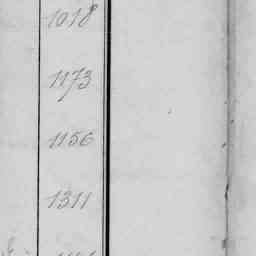 1018
1173
1156
1311